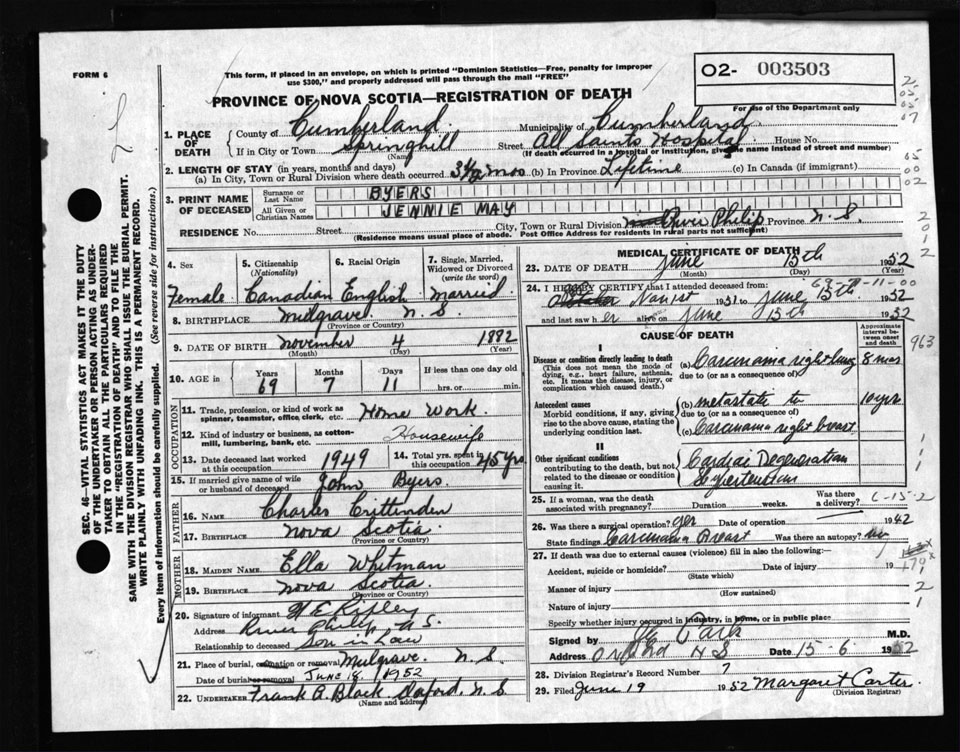 FORM 6
This form, if placed in an envelope, on which is printed "Dominion Statistics—Free, penalty for improper
use $300," and properly addressed will pass through the mail "FREE"
02- 003503
For use of the Department only
PROVINCE OF NOVA SCOTIA—REGISTRATION OF DEATH
1. PLACE OF DEATH County of Cumberland Municipality of Cumberland
If in City or Town Springhill (Name) Street All Saints Hospital House No.
(If death occurred in a hospital or institution, give name instead of street and number)
2. LENGTH OF STAY (in years, months and days)
(a) In City, Town or Rural Division where death occurred 3½ mos (b) In Province Lifetime (c) In Canada (if immigrant)
3. PRINT NAME OF DECEASED Surname or Last Name BYERS
All Given or Christian Names JENNIE MAY
RESIDENCE No. Street City, Town or Rural Division River Philip Province N.S.
(Residence means usual place of abode. Post Office Address for residents in rural parts not sufficient)
4. Sex Female
5. Citizenship (Nationality) Canadian
6. Racial Origin English
7. Single, Married, Widowed or Divorced (write the word) Married
8. BIRTHPLACE Mulgrave N.S. (Province or Country)
9. DATE OF BIRTH November (Month) 4 (Day) 1882 (Year)
10. AGE in Years 69 Months 7 Days 11 If less than one day old hrs. or min.
OCCUPATION
11. Trade, profession, or kind of work as spinner, teamster, office clerk, etc. Home Work.
12. Kind of industry or business, as cotton-mill, lumbering, bank, etc. Housewife
13. Date deceased last worked at this occupation 1949
14. Total yrs. spent in this occupation 45 yrs
15. If married give name of wife or husband of deceased John Byers.
FATHER
16. NAME Charles Crittenden
17. BIRTHPLACE Nova Scotia (Province or Country)
MOTHER
18. MAIDEN NAME Ella Whitman
19. BIRTHPLACE Nova Scotia. (Province or Country)
20. Signature of informant E Ripley
Address River Philip N.S.
Relationship to deceased Son in Law
21. Place of burial, cremation or removal Mulgrave. N.S.
Date of burial or removal June 18, 1952
22. UNDERTAKER Frank A. Black Oxford, N.S
(Name and address)
MEDICAL CERTIFICATE OF DEATH
23. DATE OF DEATH June (Month) 15th (Day) 1952 (Year)
24. I HEREBY CERTIFY that I attended deceased from:
Nov 1st 1951 to June 15th 1952
and last saw her alive on June 15th 1952
CAUSE OF DEATH
Approximate interval between onset and death
I
Disease or condition directly leading to death
(This does not mean the mode of dying, e.g., heart failure, asthenia, etc. It means the disease, injury, or complication which caused death.)
(a) Carcinoma right lung 8 mos
due to (or as a consequence of)
Antecedent causes
Morbid conditions, if any, giving rise to the above cause, stating the underlying condition last.
(b) metastate to 10 yrs
due to (or as a consequence of)
(c) Carcinoma right breast
II
Other significant conditions
contributing to the death, but not related to the disease or condition causing it.
Cardiac Degeneration
Hypertension
963
25. If a woman, was the death associated with pregnancy? Duration weeks. Was there a delivery?
26. Was there a surgical operation? yes Date of operation 1942
State findings Carcinoma Breast Was there an autopsy? no
27. If death was due to external causes (violence) fill in also the following:—
Accident, suicide or homicide? (State which) Date of injury 19
Manner of injury (How sustained)
Nature of injury
Specify whether injury occurred in industry, in home, or in public place
Signed by M.D.
Address Oxford N S Date 15-6 1952
28. Division Registrar's Record Number 7
29. Filed June 19 1952 Margaret Carter
(Division Registrar)
SEC. 46—VITAL STATISTICS ACT MAKES IT THE DUTY
OF THE UNDERTAKER OR PERSON ACTING AS UNDER-
TAKER TO OBTAIN ALL THE PARTICULARS REQUIRED
IN THE "REGISTRATION OF DEATH" AND TO FILE THE
SAME WITH THE DIVISION REGISTRAR WHO SHALL ISSUE THE BURIAL PERMIT.
WRITE PLAINLY WITH UNFADING INK. THIS IS A PERMANENT RECORD.
Every item of information should be carefully supplied. (See reverse side for instructions.)